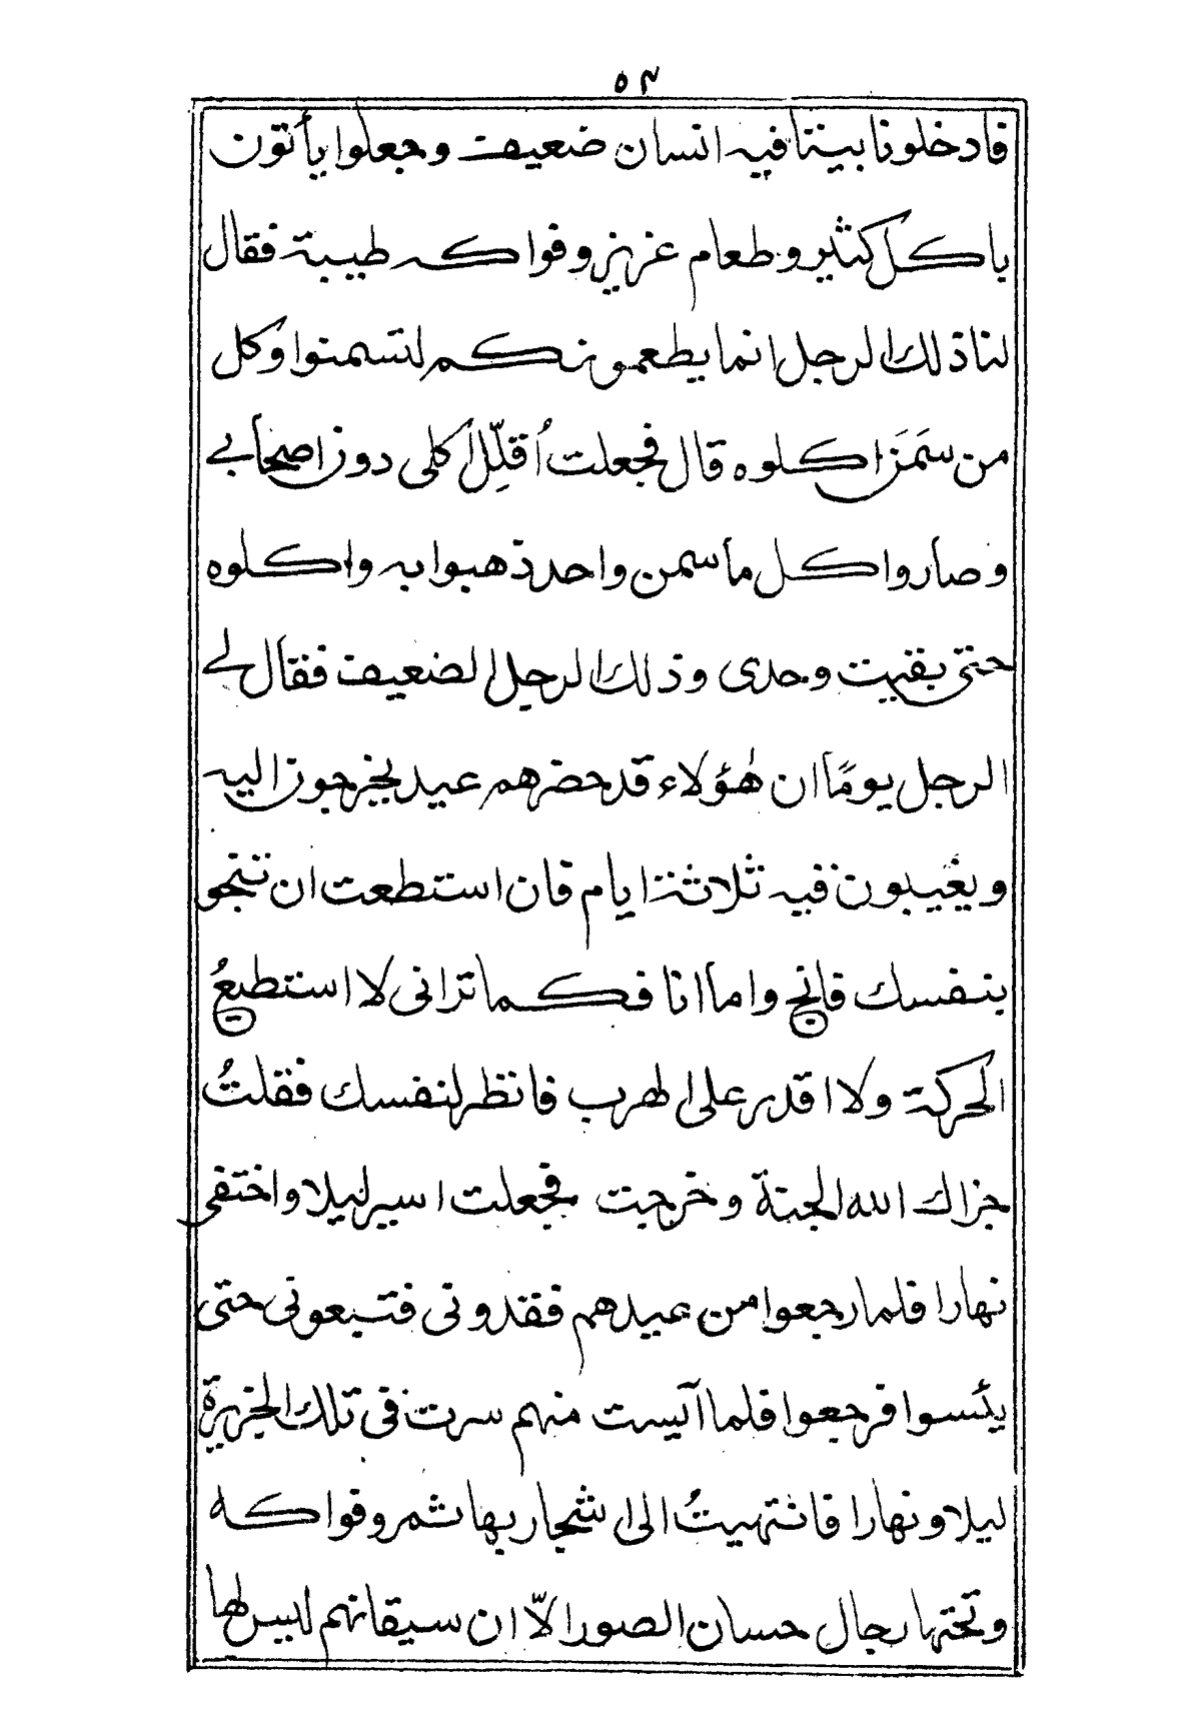 ٥٣
فادخلونا بيتا فيه انسان ضعيف وجعلوا يأتون
باكل كثير وطعام عزيز وفواكه طيبة فقال
لنا ذلك الرجل انما يطعمونكم لتسمنوا وكل
من سَمَنَ اكلوه قال فجعلت اُقلِّل أكلى دون اصحابى
وصاروا كل ما سمن واحد ذهبوا به واكلوه
حتى بقيت وحدى وذلك الرجل الضعيف فقال لى
الرجل يومًا ان هٰؤلاء قد حضرهم عيد يخرجون اليه
ويغيبون فيه ثلاثة ايام فان استطعت ان تنجو
بنفسك فانج واما انا فكما ترانى لا استطيعُ
الحركة ولا اقدر على الهرب فانظر لنفسك فقلتُ
جزاك الله الجنة وخرجت فجعلت اسير ليلا واختفى
نهارا فلما رجعوا من عيدهم فقدونى فتبعونى حتى
يئسوا فرجعوا فلما آيست منهم سرت فى تلك الجزيرة
ليلا ونهارا فانتهيتُ الى اشجار بها ثمر وفواكه
وتحتها رجال حسان الصور الاّ ان سيقانهم ليس لها